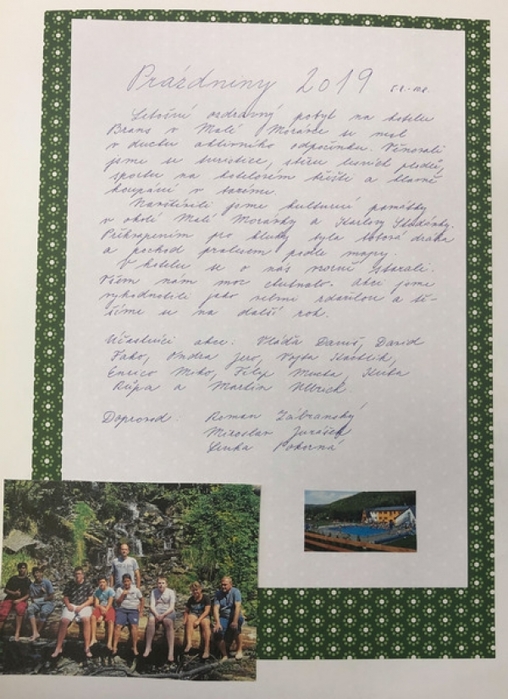 Prázdniny 2019
Letošní ozdravný pobyt na hotelu
Brans v Malé Morávce se nesl
v duchu aktivního odpočinku. Věnovali
jsme se turistice, sběru lesních plodů,
sportu na hotelovém hřišti a hlavně
koupání v bazénu.
Navštívili jsme kulturní památky
v okolí Malé Morávky a Karlovy Studánky.
Překvapením pro kluky byla bobová dráha
a pochod pralesem podle mapy.
V hotelu se o nás vzorně starali.
Všem nám moc chutnalo. Akci jsme
vyhodnotili jako velmi zdařilou a tě-
šíme se na další rok.
Účastníci akce: Vláďa Daniš, David
Fako, Ondra Jero, Vojta
Enrico Miko, Filip Mucha, Kuba
Řúpa a Martin
Doprovod: Roman Zábranský
Miroslav Jurásek
Lenka Pokorná